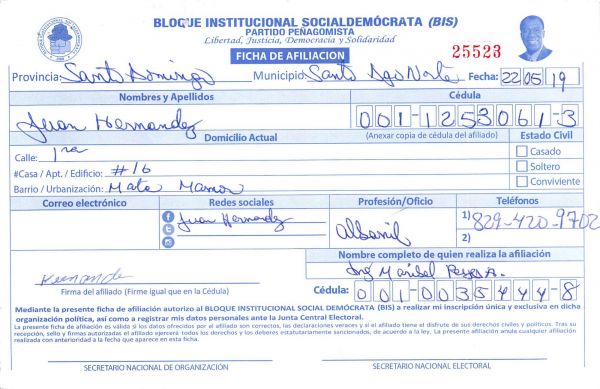 BLOQUE INSTITUCIONAL SOCIALDEMÓCRATA (BIS)
PARTIDO PEÑAGOMISTA
Libertad, Justicia, Democracia y Solidaridad
FICHA DE AFILIACION
25523
Provincia: Santo Domingo Municipio: Santo Dgo Norte Fecha: 22/05/19
Nombres y Apellidos
Cédula
Juan Hernandez
001-1253061-3
Domicilio Actual
(Anexar copia de cédula del afiliado)
Estado Civil
Calle: 1ra
Casado
#Casa / Apt. / Edificio: #16
Soltero
Barrio / Urbanización: Mata Mamon
Conviviente
Correo electrónico
Redes sociales
Profesión/Oficio
Teléfonos
Juan Hernandez
Albanil
1) 829-420-9702
2)
Nombre completo de quien realiza la afiliación
Ing Marisol Reyes A.
Firma del afiliado (Firme igual que en la Cédula)
Cédula: 001-0035444-8
Mediante la presente ficha de afiliación autorizo al BLOQUE INSTITUCIONAL SOCIAL DEMÓCRATA (BIS) a realizar mi inscripción única y exclusiva en dicha
organización política, así como a registrar mis datos personales ante la Junta Central Electoral.
La presente ficha de afiliación es válida si los datos ofrecidos por el afiliado son correctos, las declaraciones veraces y si el afiliado tiene el disfrute de sus derechos civiles y políticos. Tras su
recepción, sello y firmas autorizadas el afiliado ejercerá todos los derechos y los deberes estatutariamente sancionados, de acuerdo a la ley. La presente afiliación anula cualquier afiliación
realizada con anterioridad a la fecha que aparece en esta ficha.
SECRETARIO NACIONAL DE ORGANIZACIÓN
SECRETARIO NACIONAL ELECTORAL